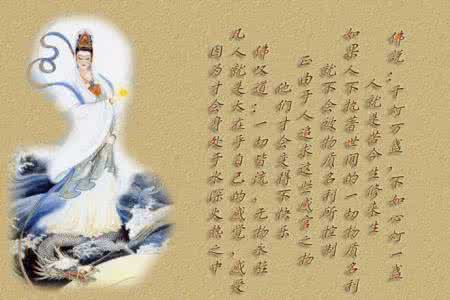 佛说:千灯万盏,不如心灯一盏
人就是苦今生修来生
如果人不执著世间的一切物质名利
就不会被物质名利所控制
正由于人追求这些感官之物
他们才会变得不快乐
佛叹道:一切皆流,无物永驻
凡人就是太在乎自己的感觉,感受
因为才会身处于水深火热之中